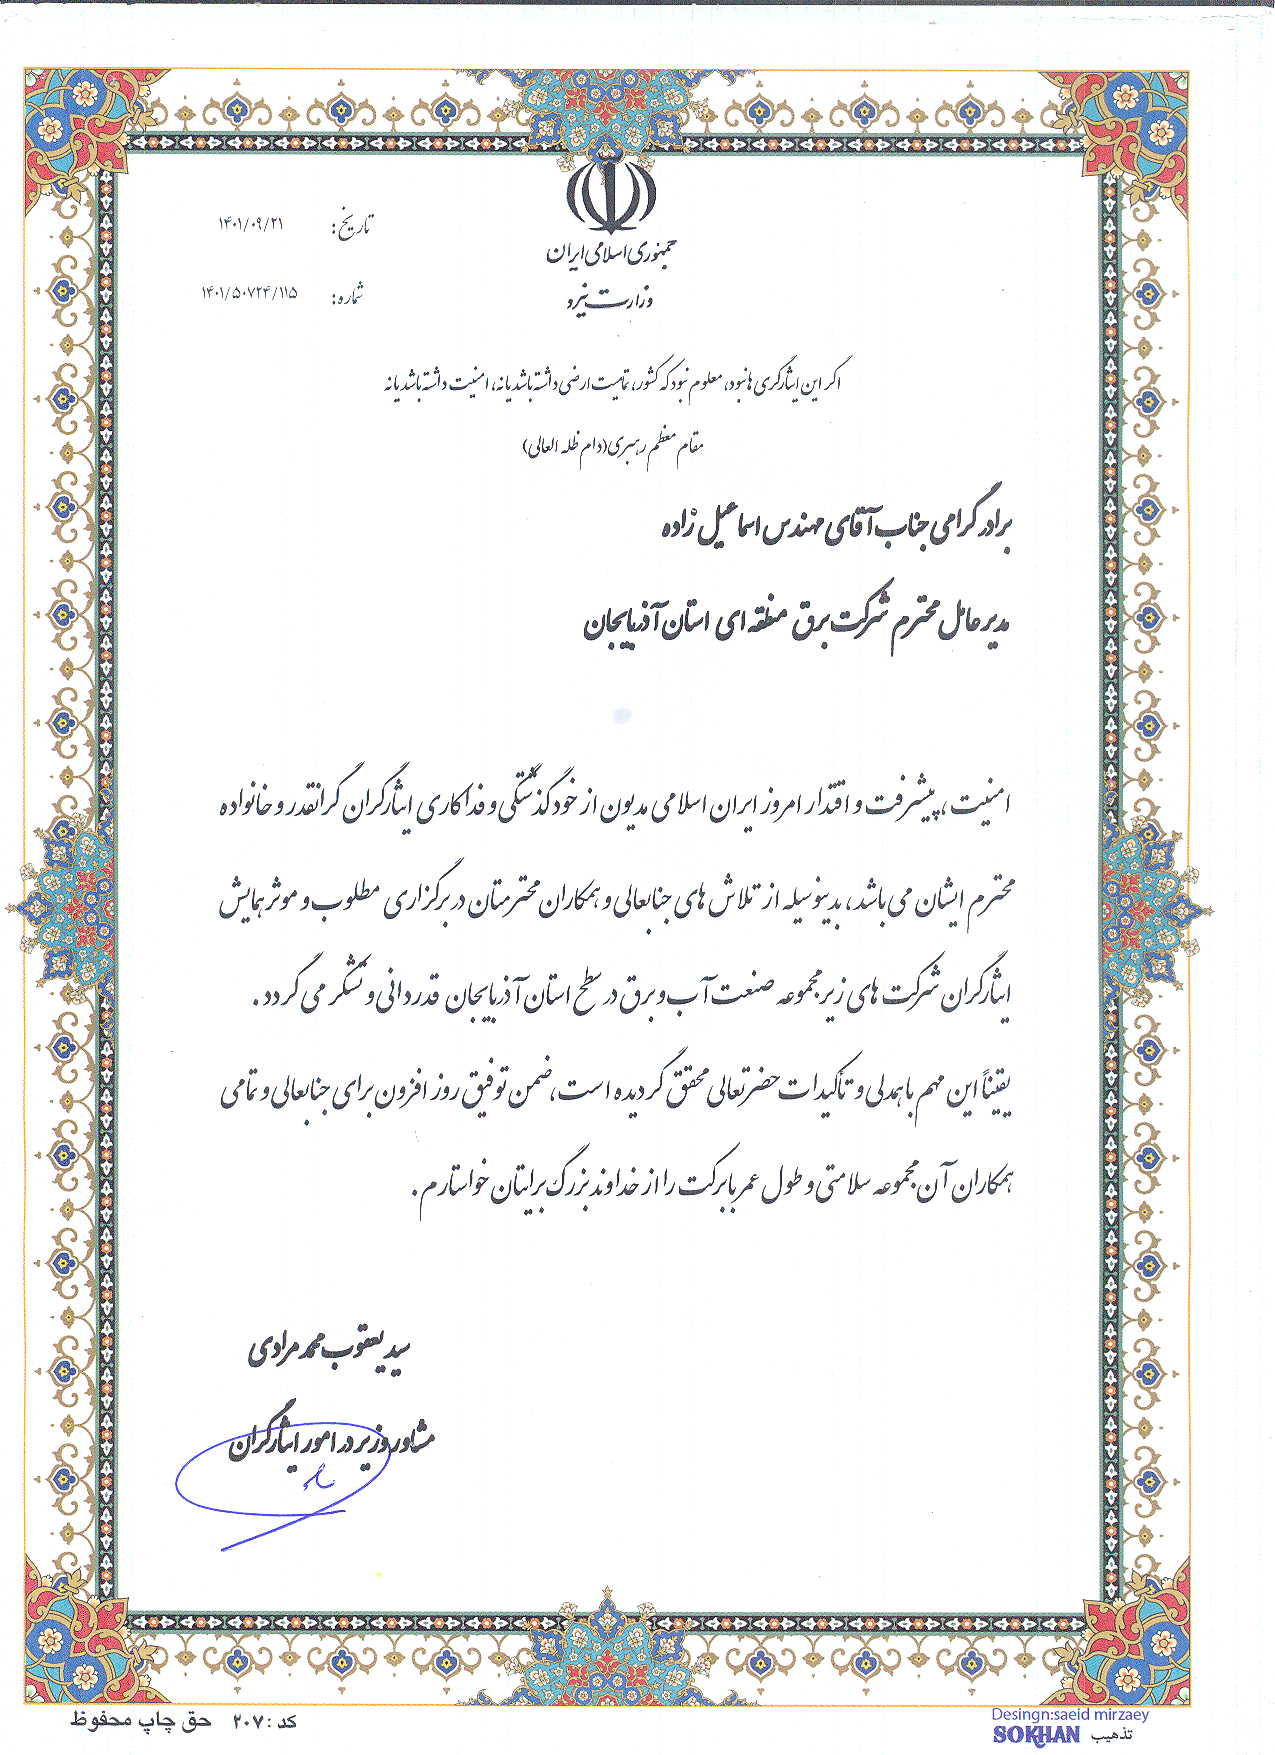 جمهوری اسلامی ایران
وزارت نیرو
تاریخ: ۱۴۰۱/۰۹/۲۱
شماره: ۱۴۰۱/۵۰۷۲۴/۱۱۵
اگر این ایثارگری ها نبود، معلوم نبود که کشور، تمامیت ارضی داشته باشد یا نه، امنیت داشته باشد یا نه
مقام معظم رهبری(دام ظله العالی)
برادر گرامی جناب آقای مهندس اسماعیل زاده
مدیر عامل محترم شرکت برق منطقه ای استان آذربایجان
امنیت، پیشرفت و اقتدار امروز ایران اسلامی مدیون از خود گذشتگی و فداکاری ایثارگران گرانقدر و خانواده
محترم ایشان می باشد، بدینوسیله از تلاش های جنابعالی و همکاران محترمتان در برگزاری مطلوب و موثر همایش
ایثارگران شرکت های زیر مجموعه صنعت آب و برق در سطح استان آذربایجان قدردانی و تشکر می گردد.
یقیناً این مهم با همدلی و تأکیدات حضرتعالی محقق گردیده است، ضمن توفیق روز افزون برای جنابعالی و تمامی
همکاران آن مجموعه سلامتی و طول عمر با برکت را از خداوند بزرگ برایتان خواستارم.
سید یعقوب محمد مرادی
مشاور وزیر در امور ایثارگران
کد : ۲۰۷ حق چاپ محفوظ
Desingn:saeid mirzaey
تذهیب SOKHAN